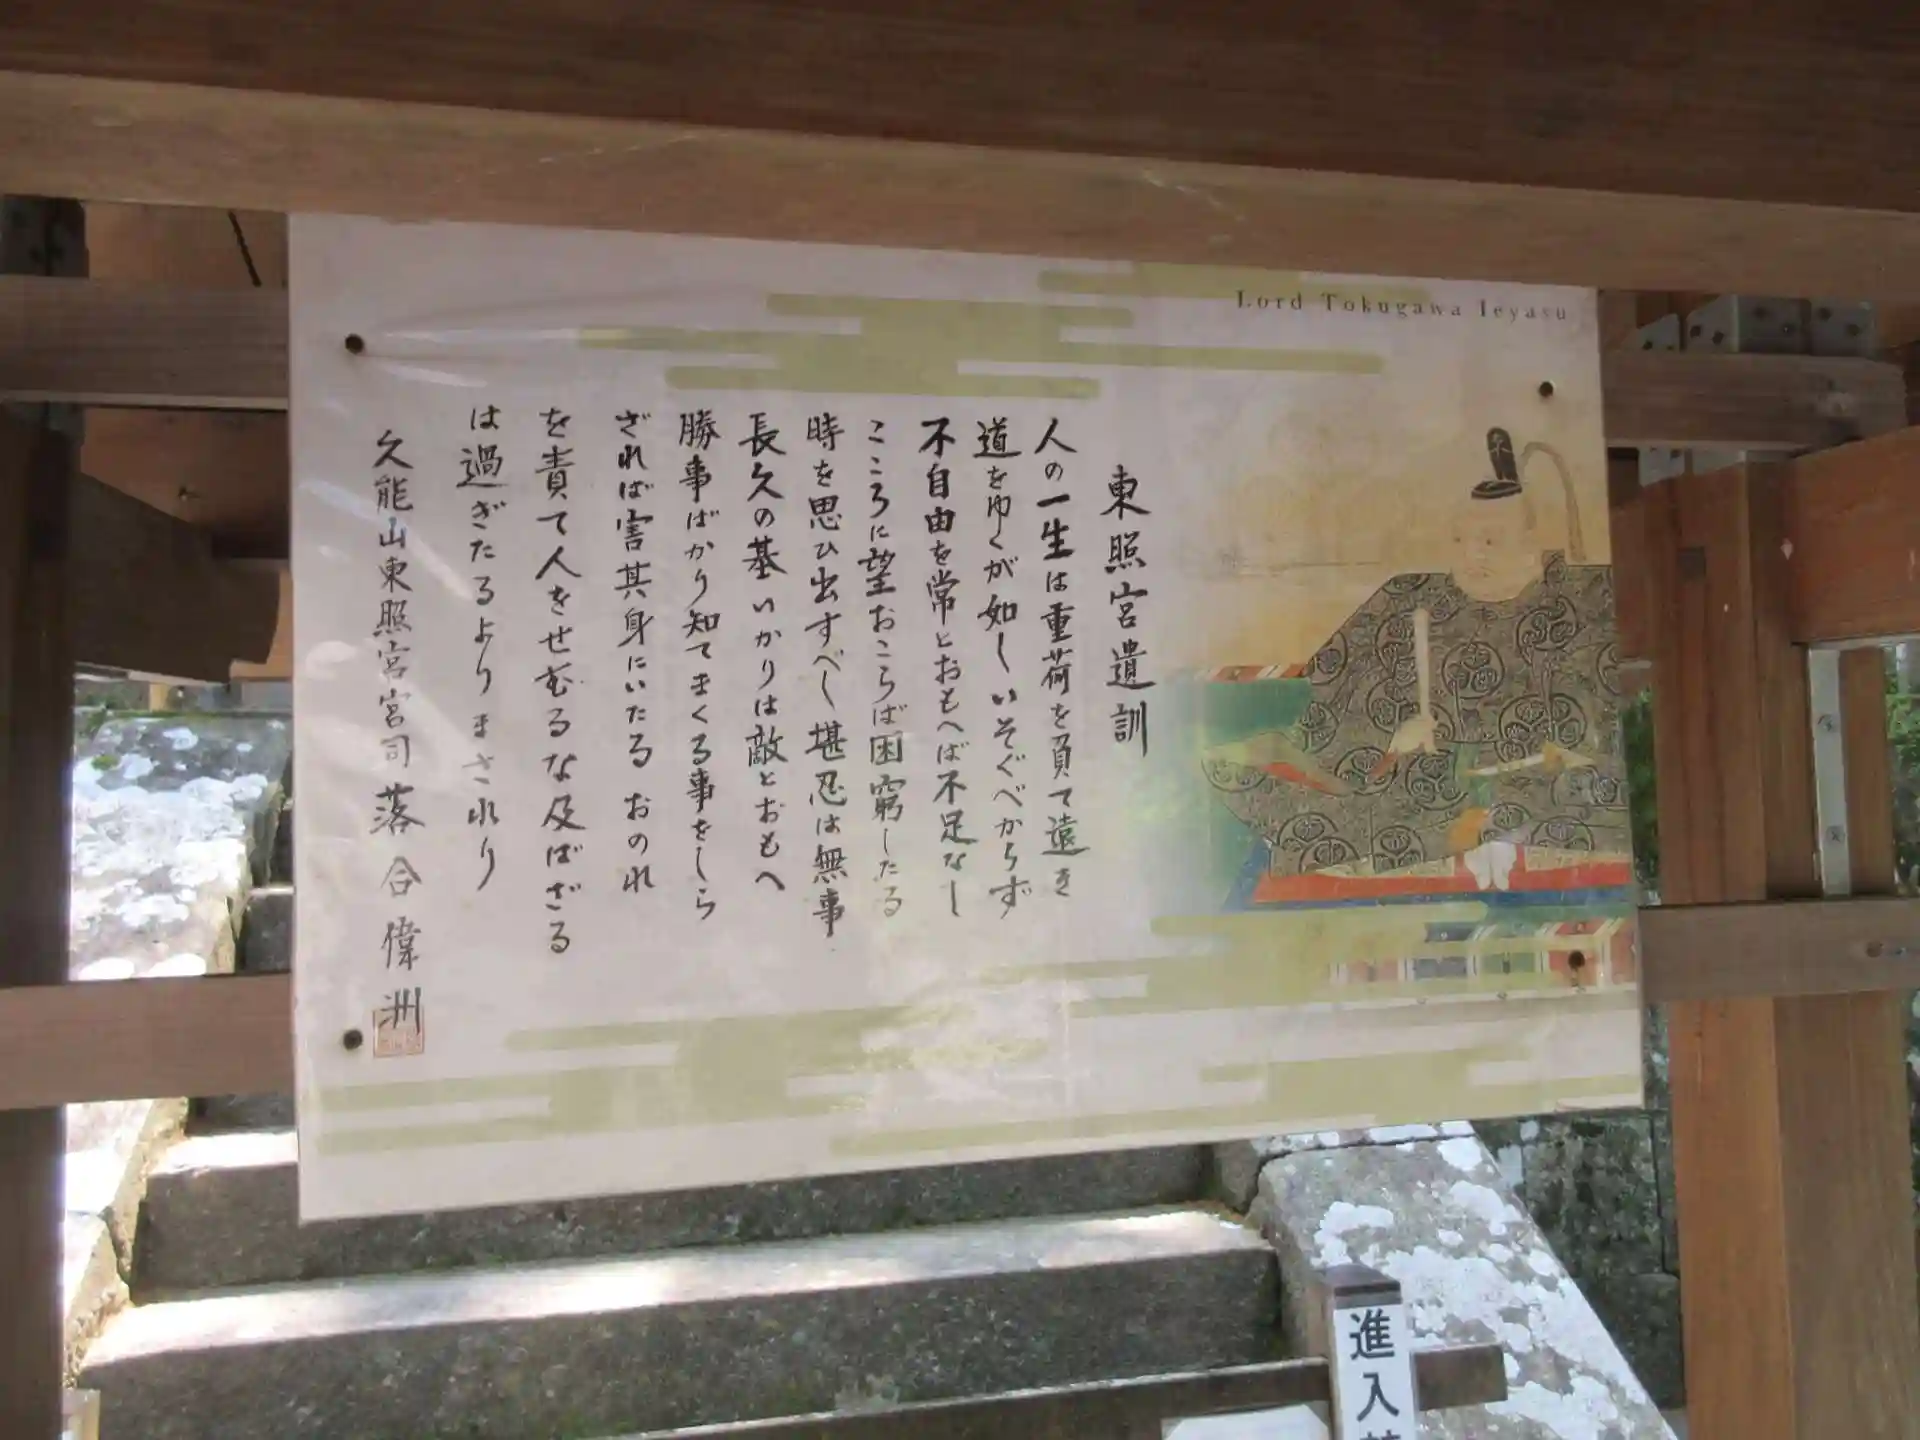 Lord Tokugawa Ieyasu
東照宮遺訓
人の一生は重荷を負て遠き
道をゆくが如しいそぐべからず
不自由を常とおもへば不足なし
こころに望おこらば困窮したる
時を思ひ出すべし堪忍は無事
長久の基いかりは敵とおもへ
勝事ばかり知てまくる事をしら
ざれば害其身にいたるおのれ
を責て人をせむるな及ばざる
は過ぎたるよりまされり
久能山東照宮宮司落合偉洲
進入